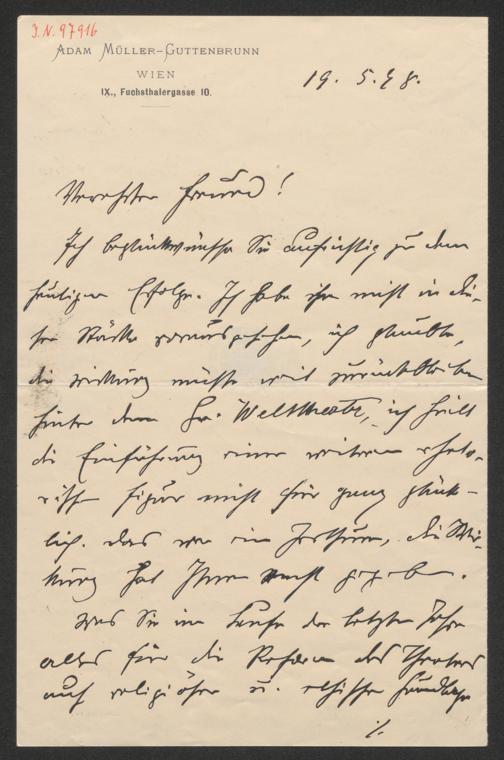 J.N. 97916
ADAM MÜLLER-GUTTENBRUNN
WIEN
IX., Fuchsthalergasse 10.
19. 5. 98.
Verehrter Freund!
Ich beglückwünsche Sie aufrichtig zu dem
heutigen Erfolge. Ich habe ihn nicht in die-
ser Stärke vorausgesehen, ich glaubte,
die Wirkung müsste weit zurückbleiben
hinter dem Gr. Welttheater, ich hielt
die Einführung einer weiteren rheto-
rischen Figur nicht für ganz glück-
lich. Das war ein Irrthum, die Wir-
kung hat Ihnen recht gegeben.
Was Sie im Laufe der letzten Jahre
alles für die Reform des Theaters
auf religiöser u. ethischer Grundlage